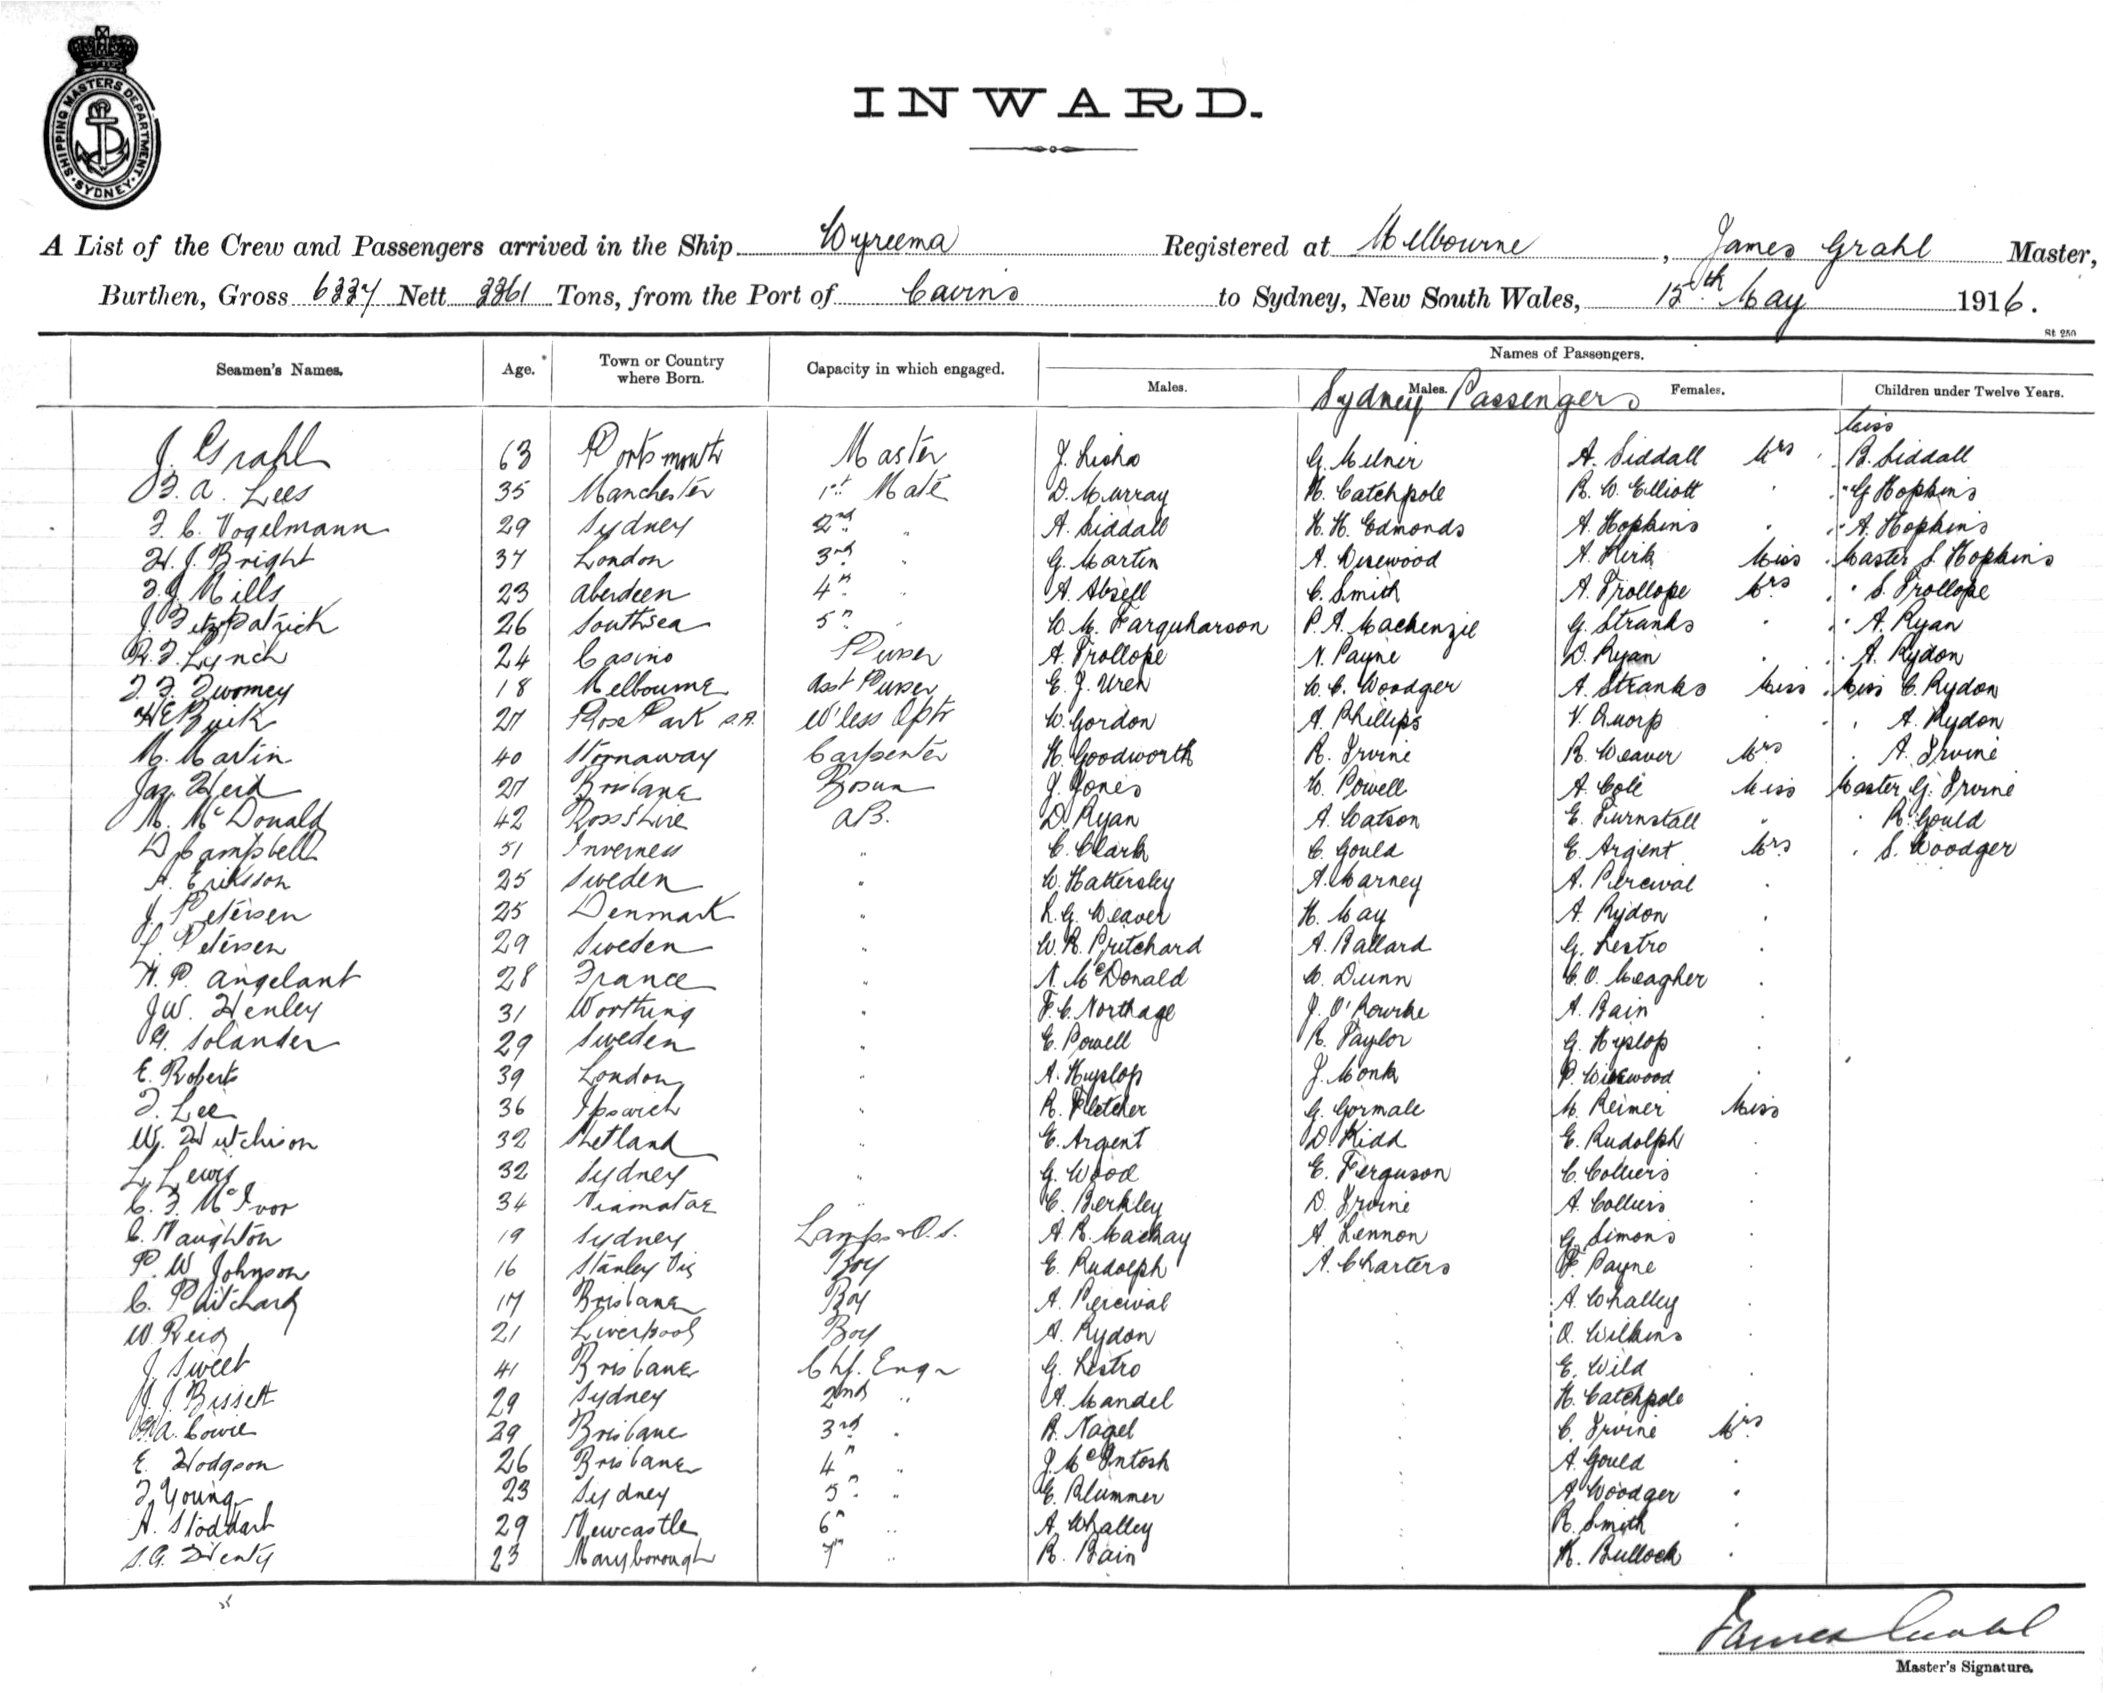 SHIPPING MASTERS DEPARTMENT. SYDNEY
INWARD.
A List of the Crew and Passengers arrived in the Ship Wyreema Registered at Melbourne, James Grahl Master,
Burthen, Gross 6337 Nett 3361 Tons, from the Port of Cairns to Sydney, New South Wales, 15th May 1916.
St 250
Seamen's Names. Age. Town or Country where Born. Capacity in which engaged. Names of Passengers.
Males. Males. Females. Children under Twelve Years.
Sydney Passengers
Miss
J. Grahl 63 Portsmouth Master J. Lisha G. Milner A. Siddall Mrs B. Siddall
F. A. Lees 35 Manchester 1st Mate D. Murray H. Catchpole R. W. Elliott " G Hopkins
F. C. Vogelmann 29 Sydney 2nd " A. Siddall H. H. Edmonds A. Hopkins " A. Hopkins
H. J. Bright 37 London 3rd " G. Martin A. Disewood A. Kirk Miss Master S. Hopkins
F. J. Mills 23 Aberdeen 4th " A. Absell C. Smith A. Trollope Mrs " S. Trollope
J. Fitzpatrick 26 Southsea 5th " W. M. Farquharson P. A. Mackenzie G. Stranks " " A. Ryan
R. F. Lynch 24 Casino Purser A. Trollope N. Payne D. Ryan " " A. Rydon
F. F. Twomey 18 Melbourne Asst Purser E. J. Uren W. C. Woodger A. Stranks Miss Miss C. Rydon
27 Rose Park S.A. W'less Optr W. Gordon A. Phillips V. Quorp " " A. Rydon
M. Martin 40 Stornaway Carpenter H. Goodworth R. Irvine R. Weaver Mrs " A. Irvine
Jas. Herd 27 Brisbane Bosun J. Jones W. Powell A. Cole Miss Master G. Irvine
M. McDonald 42 Rosshire A.B. D. Ryan A. Watson E. Turnstall " " R. Gould
D. Campbell 51 Inverness " C. Clark C. Gould E. Argent Mrs " S. Woodger
A. Eriksson 25 Sweden " W. Hattersley A. Marney A. Percival "
J. Petersen 25 Denmark " R. G. Weaver H. May A. Rydon "
L. Petersen 29 Sweden " W. R. Pritchard A. Ballard G. Lestro "
A. P. Angelant 28 France " N. McDonald W. Dunn C. O. Meagher "
J. W. Henley 31 Worthing " F. C. Northage J. O'Rourke A. Bain "
G. Solander 29 Sweden " E. Powell R. Taylor G. Hyslop "
E. Roberts 39 London " A. Hyslop J. Monk P. "
F. Lee 36 Ipswich " R. Fletcher G. Gormale M. Reimer Miss
W. Hutchison 32 Shetland " E. Argent D. Kidd E. Rudolph "
L. Lewis 32 Sydney " G. Wood E. Ferguson C. Colliers "
C. F. McIvor 34 " C. Berkley D. Irvine A. Colliers "
C. Naughton 19 Sydney Lamps & O.S. A. R. Mackay A. Lennon G. Simons "
P. W. Johnson 16 Stanley Vic Boy E. Rudolph A. Charters F. Payne "
C. Pritchard 17 Brisbane Boy A. Percival A. Whalley "
W. Reid 21 Liverpool Boy A. Rydon O. Wilkins "
J. Sweet 41 Brisbane Chf. Engr G. Lestro E. Wild "
J. J. Bissett 29 Sydney 2nd " A. Mandel H. Catchpole "
G. A. Cowie 29 Brisbane 3rd " R. Nagel C. Irvine Mrs
E. Hodgson 26 Brisbane 4th " J. McIntosh A. Gould "
F. Young 23 Sydney 5th " E. Plummer A. Woodger "
A. Stoddart 29 Newcastle 6th " A. Whalley R. Smith "
S. G. Denty 23 Maryborough 7th " R. Bain K. Bullock "
James Grahl
Master's Signature.